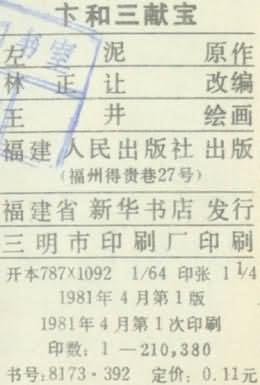 卞和三献宝
左泥 原作
林正让 改编
王井 绘画
福建人民出版社 出版
(福州得贵巷27号)
福建省新华书店 发行
三明市印刷厂印刷
开本787×1092 1/64 印张 1 1/4
1981年4月第1版
1981年4月第1次印刷
印数:1—210,380
书号:8173·392 定价:0.11元
书室